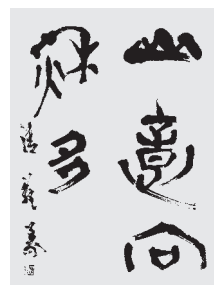 山意向
秋多